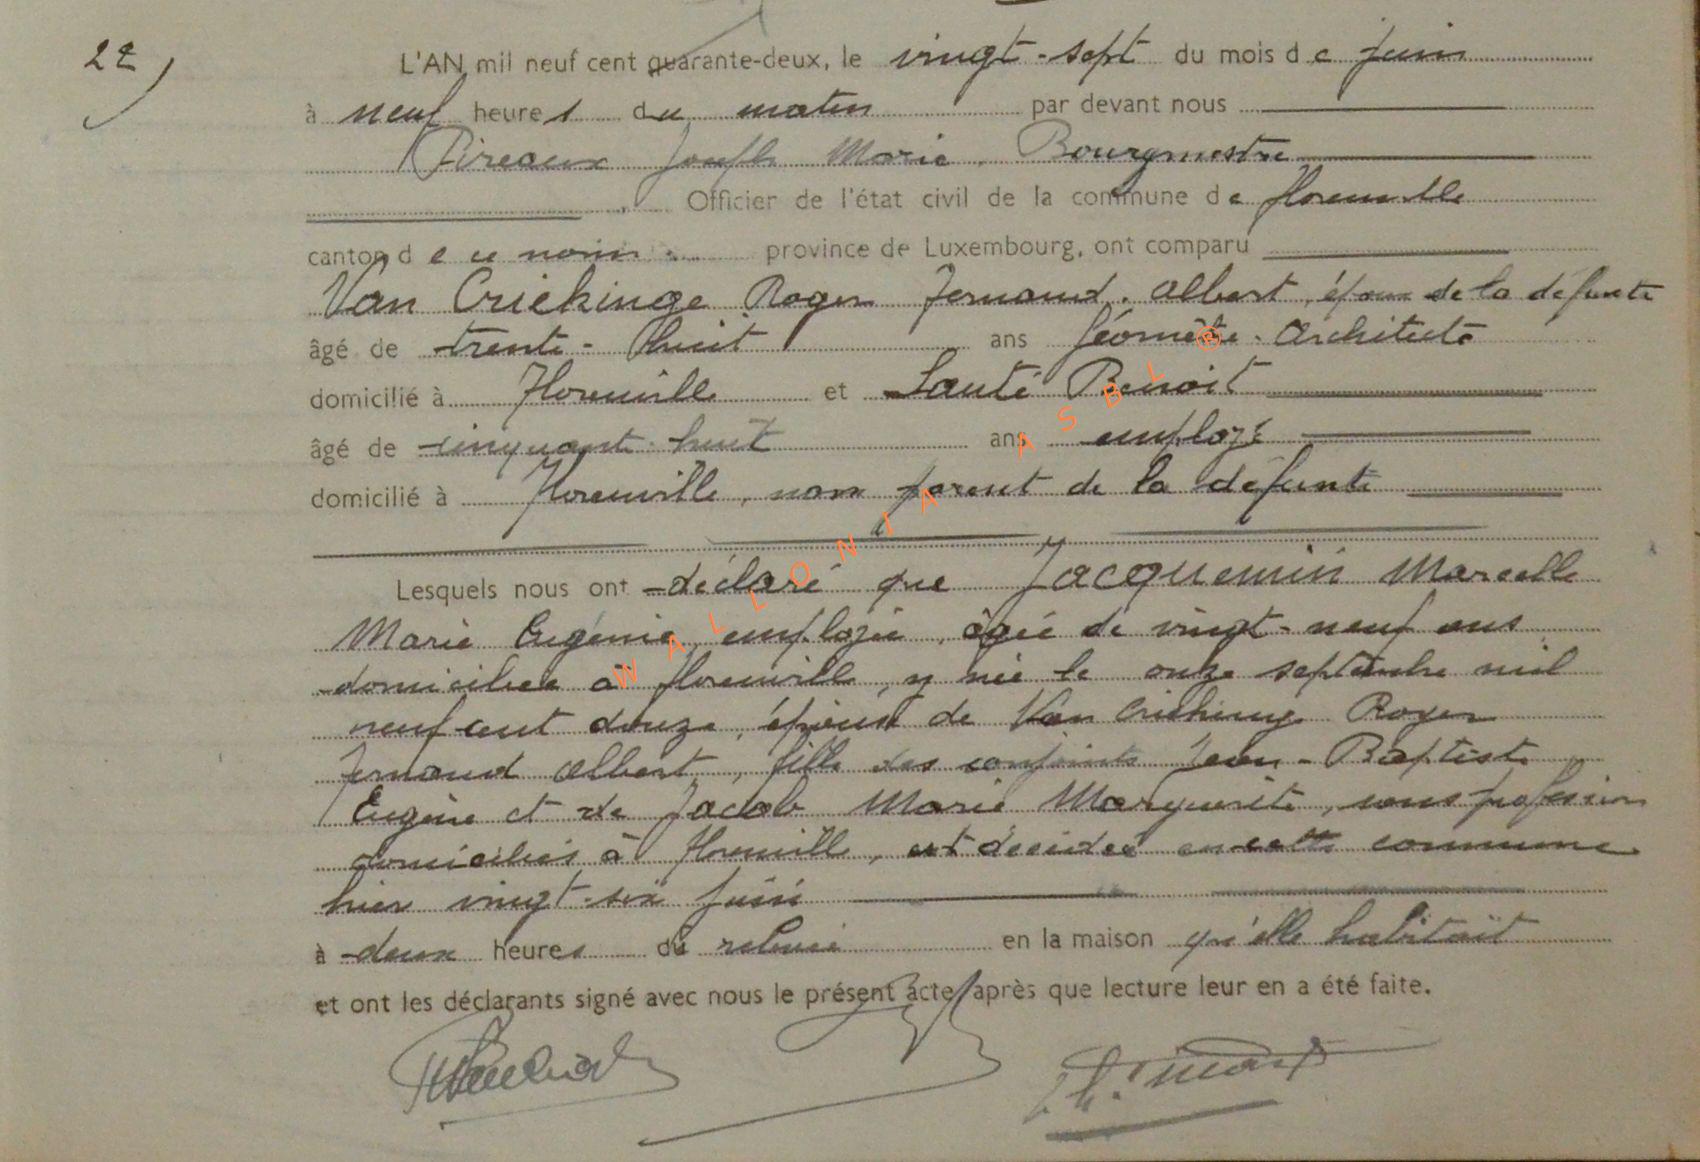 22)
L'AN mil neuf cent quarante-deux, le vingt-sept du mois de juin
à neuf heures du matin par devant nous
Pireaux Joseph Marie, Bourgmestre
Officier de l'état civil de la commune de Florenville
canton de ce nom province de Luxembourg, ont comparu
Van Criekinge Roger Fernand, Albert, époux de la défunte
âgé de trente-huit ans Géomètre-Architecte
domicilié à Florenville et Lauté Benoit
âgé de cinquante-huit ans employé
domicilié à Florenville, non parent de la défunte
Lesquels nous ont déclaré que Jacquemin Marcelle
Marie Eugénie, employée, âgée de vingt-neuf ans
domiciliée à Florenville, y née le onze septembre mil
neuf cent douze, épouse de Van Criekinge Roger
Fernand Albert, fille des conjoints Jean-Baptiste
Eugène et de Jacob Marie Marguerite, sans profession
domiciliés à Florenville, est décédée en cette commune
hier vingt-six juin
à deux heures du relevée en la maison qu'elle habitait
et ont les déclarants signé avec nous le présent acte après que lecture leur en a été faite.
WALLONIA ASBL ®